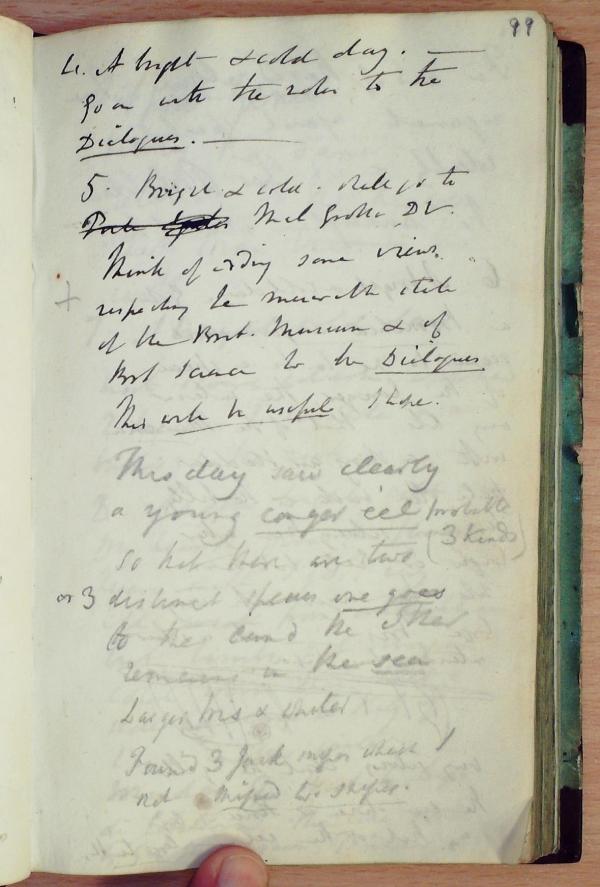 99
4. A bright & cold day. —
Go on with the notes to the
Dialogues. —
5. Bright & cold.
Grotto
Think of adding some views
+ respecting the miserable state
of the Brit. Museum & of
Brit Science to the Dialogues
This will be useful I hope.
This day saw clearly
a young conger eel probable
(3 kinds)
so that there are two
or 3 distinct species one goes
to the land the other
remains in the sea
Larger &
Found 3 Jack snipes
not missed two snipes.